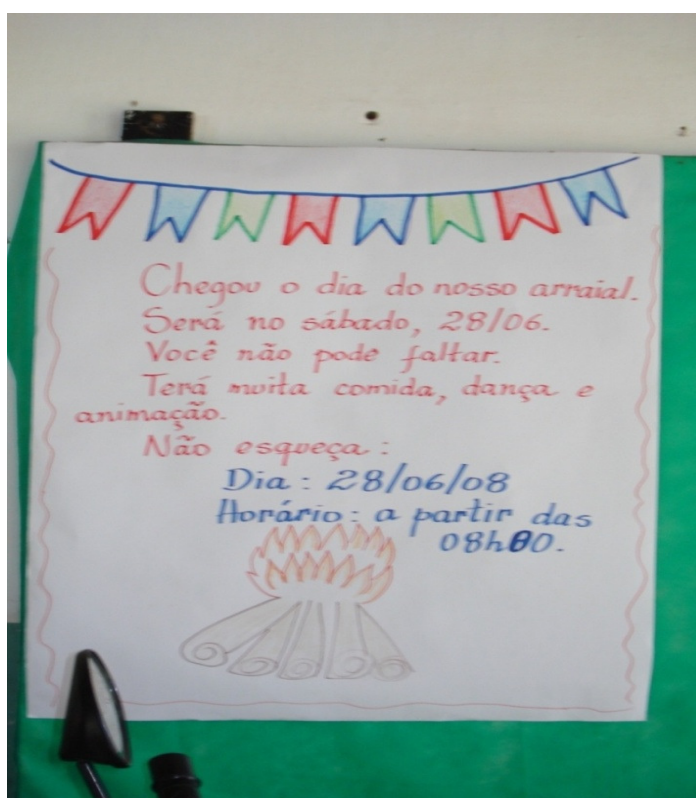 Chegou o dia do nosso arraial.
Será no sábado, 28/06.
Você não pode faltar.
Terá muita comida, dança e
animação.
Não esqueça:
Dia: 28/06/08
Horário: a partir das
08h00.